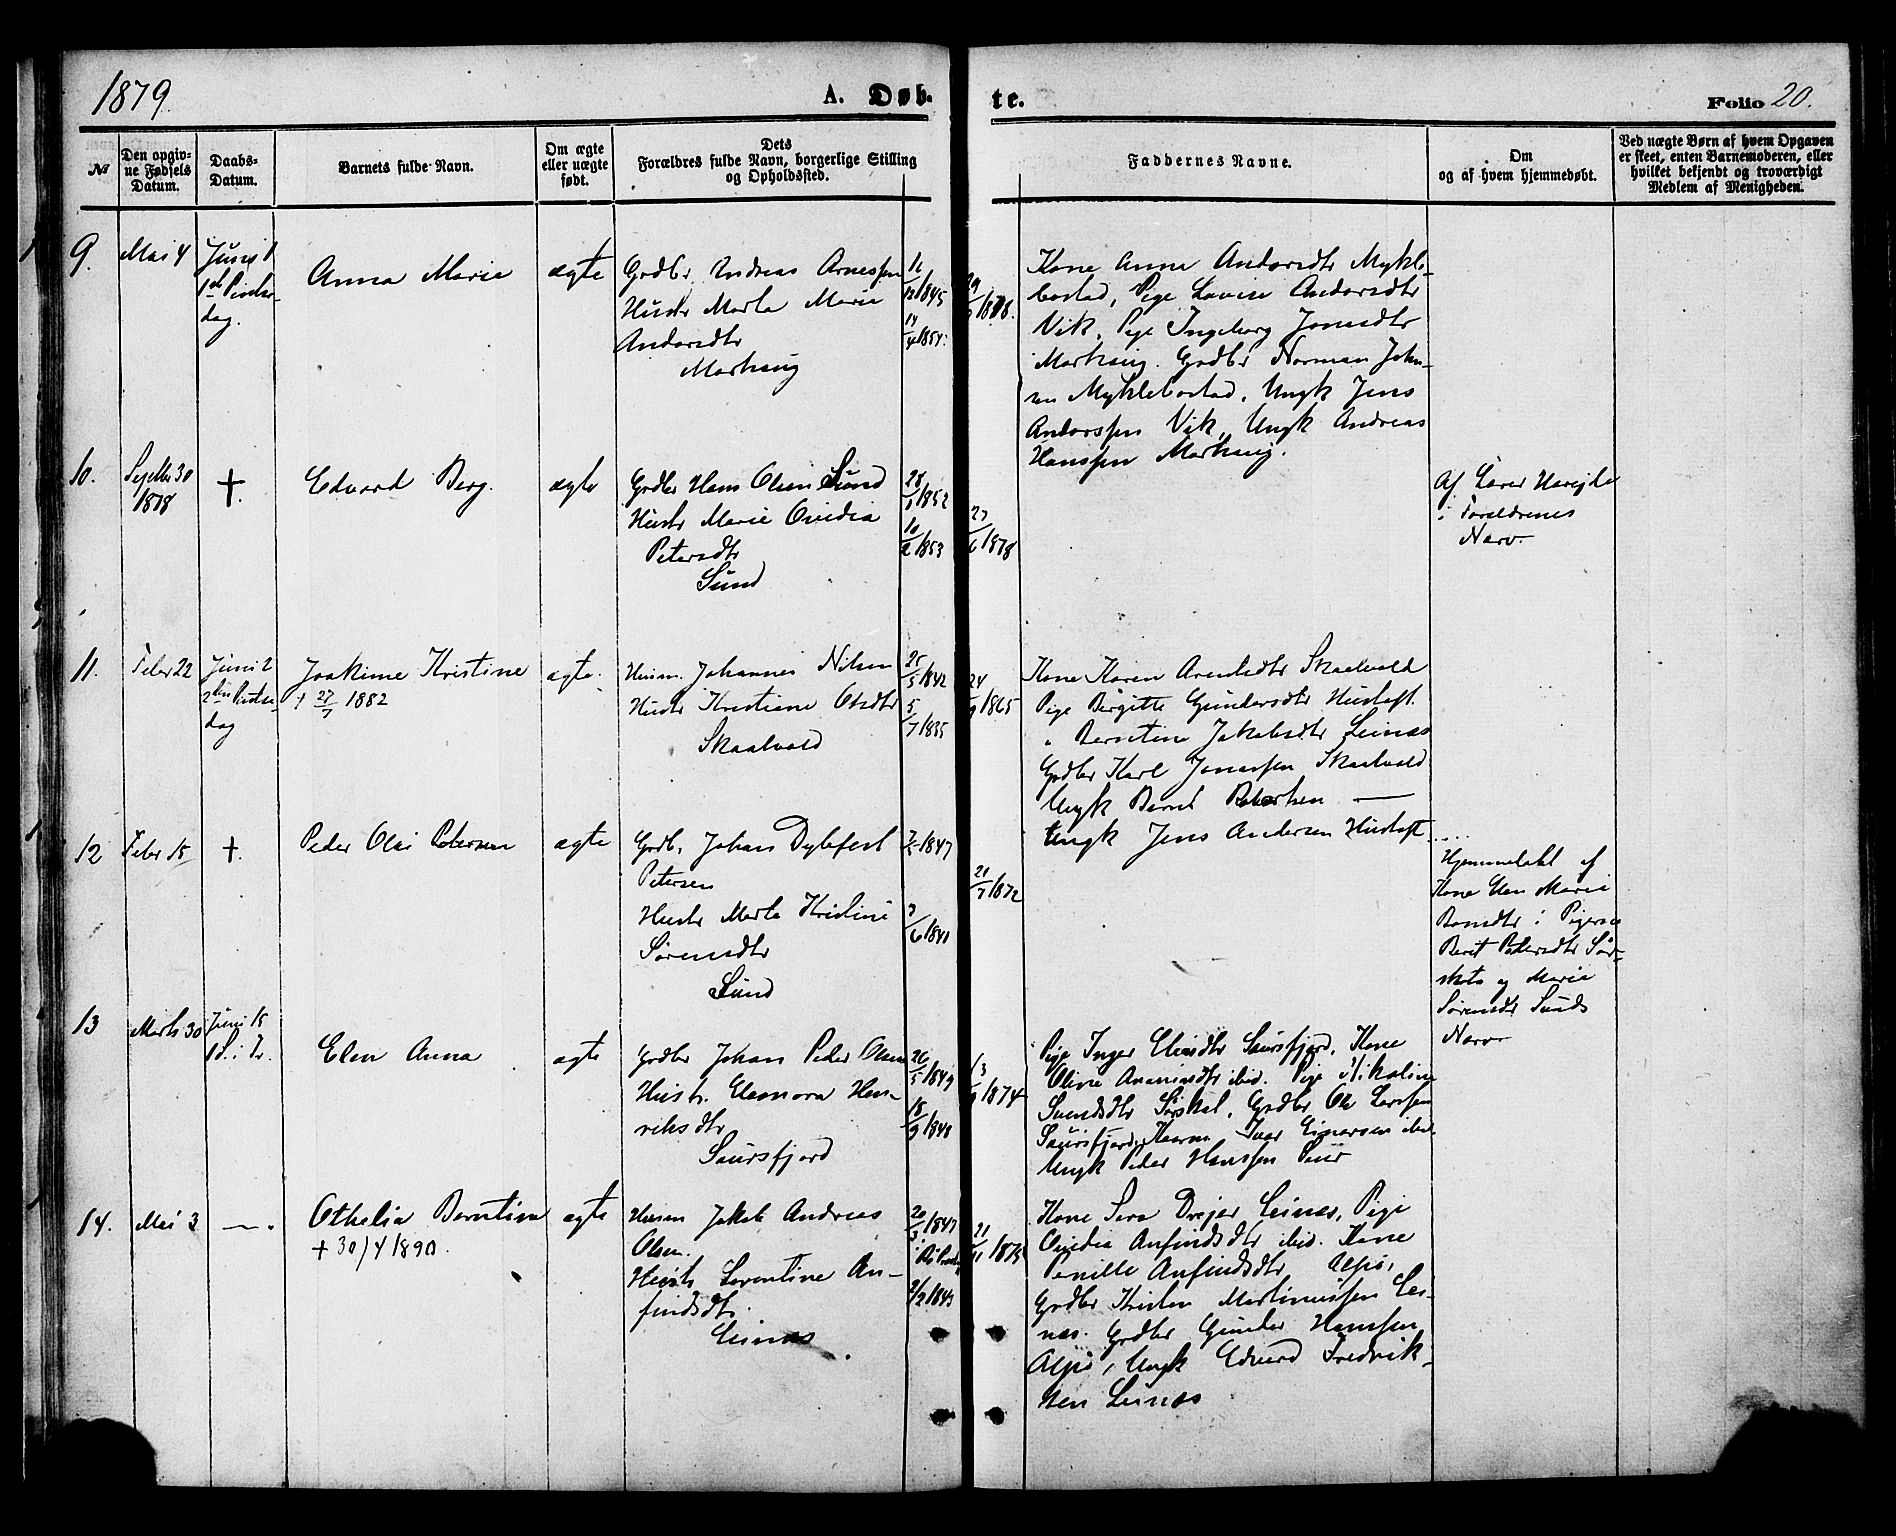 1879.
A. Døb-
te.
Folio 20.
№
Den opgiv-
ne Fødsels
Datum.
Daabs-
Datum.
Barnets fulde Navn.
Om ægte
eller uægte
født.
Dets
Forældres fulde Navn, borgerlige Stilling
og Opholdssted.
Faddernes Navne.
Om
og af hvem hjemmedøbt.
Ved uægte Børn af hvem Opgaven
er skeet, enten Barnemoderen, eller
hvilket bekjendt og troværdigt
Medlem af Menigheden.
9.
Mai 4
Juni 1
1ste Pintse-
dag.
Anna Marie
ægte
Grdbr. Andreas Arnessen
Hustr Marta Marie
Andorsdtr
1845
14/4 1854.
1878.
Kone Anne Andorsdtr Mykle-
bostad, Pige Lovise Andorsdtr
Vik, Pige Ingeborg Jonasdtr
Grdbr Norman Joh-
sen Myklebostad, Ungk Jens
Andorssen Vik, Ungk Andreas
Hanssen
10.
Septbr 30
1878
+.
Edvard Berg.
ægte
Grdbr Hans Olsen Sund
Hustr Marie Ovidia
Petersdtr
Sund
1852
1853
27/6 1878
Af Lærer
i Forældrenes
Nærv.
11.
Febr 22
Juni 2
2den Pintse-
dag
Joakime Kristine
+ 27/7 1882
ægte.
Husm. Johannes Nilsen
Hustr Kristiane Olsdtr
Skaalvold
25/5 1842
5/7 1835
1865
Kone Karen Arentsdtr Skaalvold
Pige Birgitte Gundersdtr Hustoft
" Berntine Jakobsdtr Leinæs
Grdbr Karl Jonassen Skaalvold
Ungk Bernt Robertsen —
Ungk Jens Andersen Hustoft
12
Febr 15
+.
Peder Olai Petersen
ægte
Grdb. Johan Dylefest
Petersen
Hustr Marta Kristine
Sørensdtr
Sund
1847
21/7 1872
Hjemmedøbt af
Kone Elen Marie
i Pigerne
Berit Petersdtr Sør-
skot og Marie
Sørensdtr Sunds
Nærv
13
Marts 30
Juni 15
1 S. i Tr.
Elen Anna
ægte
Grdbr Johan Peder Olsen
Hustr. Eleonora Hen-
riksdtr
Saursfjord
26/5 1849
18/9 1848
1874
Pige Inger Eliasdtr Saursfjord, Kone
Oline Ananiasdtr ibid. Pige Nikoline
Svendsdtr Sørskot, Grdbr Ole Larssen
Saursfjord, Kaarm Ivar Einarsen ibid.
Ungk Peder Hanssen Saur
14.
Mai 3
— .
Othelia Berntine
+ 30/4 1890.
ægte
Husm Jakob Andreas
Olsen.
Hustr Lorentine An-
findsdtr.
Leinæs
20/3 1847
2/2 1849
21/11 1875
Kone Sara Drejer Leinæs, Pige
Ovidia Anfindsdtr ibid. Kone
Pernille Anfindsdtr Alpø,
Grdbr Kristen Martinussen Lei-
næs. Grdbr Gunder Hanssen
Alpø, Ungk Edvard Fredrik-
sen Leinæs